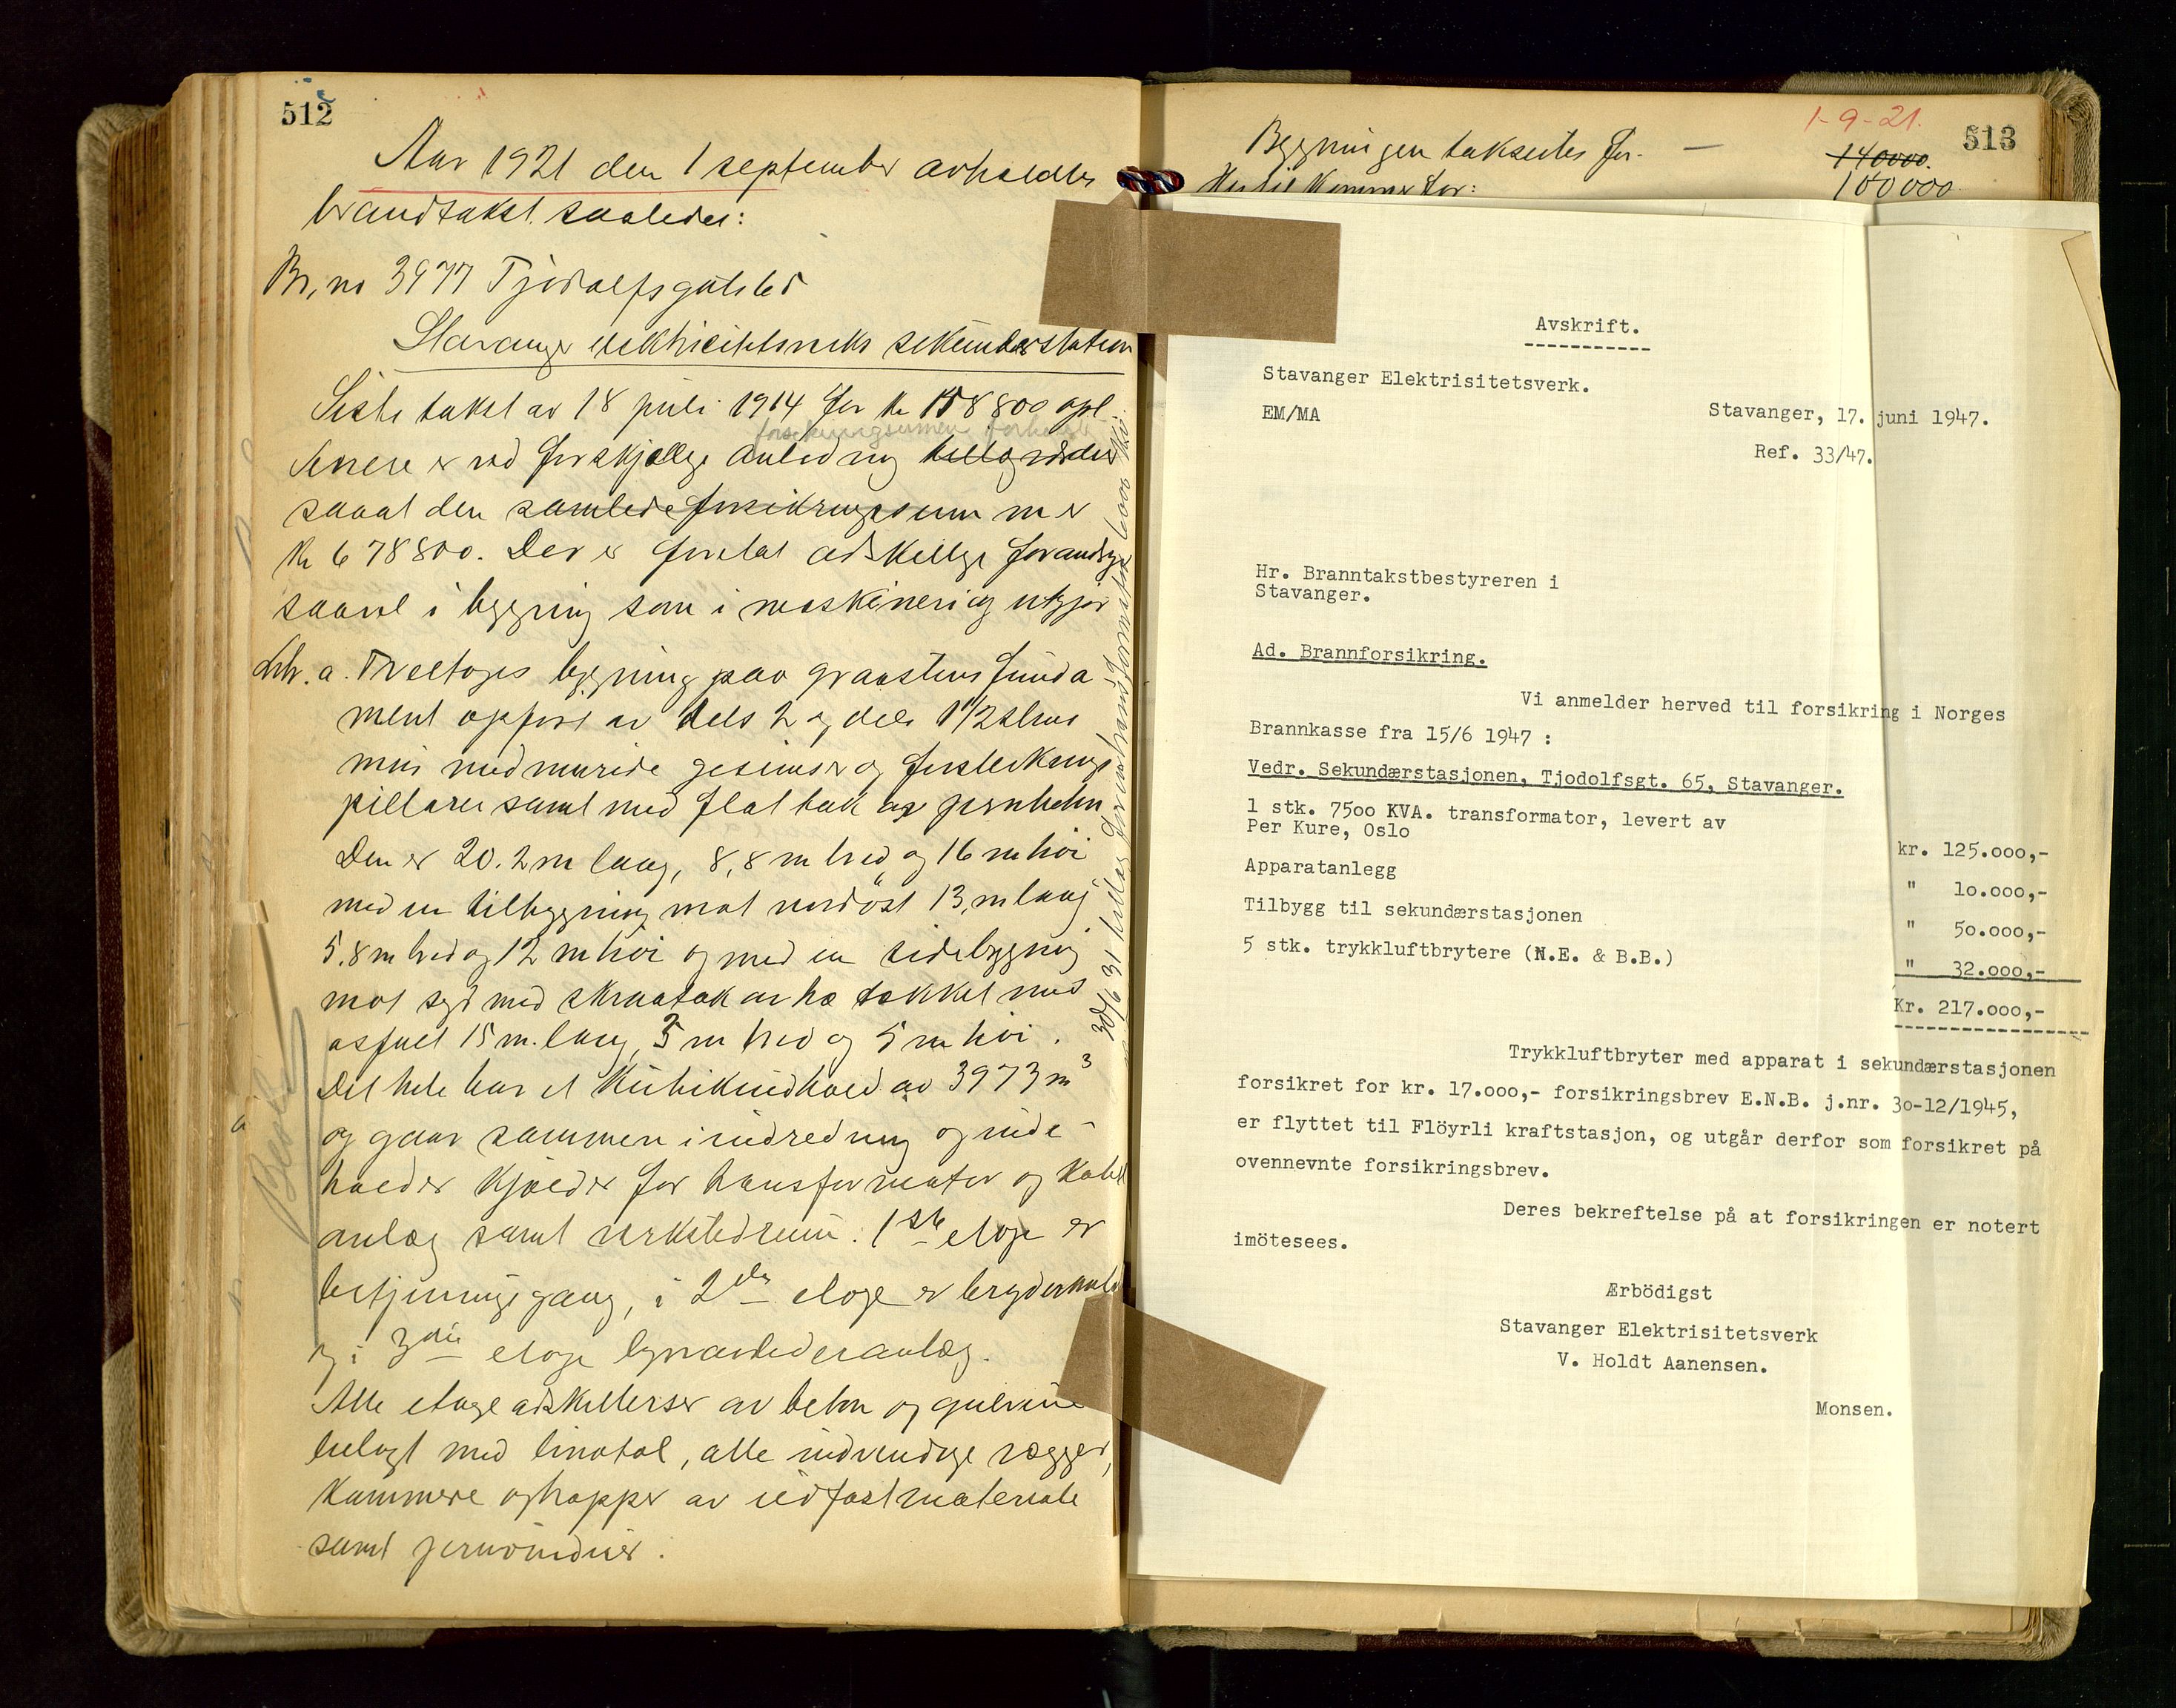 512
Aar 1921 den 1 september avholdtes
brandtakst saaledes:
Br, no 3977 Tjodolfsgate 65
Stavanger elektricitetsverks sekunderstation
Siste takst av 18 juli 1914 for kr 158800 opl.
forsikringssummen forhøiet
Senere er ved forskjellige anledning
saaat den samlede forsikringssum er
Kr 678800. Der er foretat adskillige forandrg
saavel i bygning som i maskineri og utgjør
Litr. a. Treetages bygning paa graastens funda-
ment opført av dels 2 og dels 1 1/2 stens
mur med murede gesimser og forsterknings
pillarer samt med flat tak av jernbeton
Den er 20.2 m lang, 8,8 m bred og 16 m høi
med en tilbygning mot nordøst 13, m lang
5.8 m bred og 12 m høi og med en sidebygning
mot syd med skraatak av træ tækket med
asfalt 15 m. lang, 3 m bred og 5 m høi.
Det hele har et kubikindhold av 3973 m³
og gaar sammen i indredning og inde-
holder kjælder for transformator og kabel
anlæg samt verkstedrum. 1ste etage er
betjeningsgang, i 2den etage er bryderanl
og i 3die etage lynavlederanlæg.
Alle etageadskillelser av beton og gulvene
belagt med linotol, alle indvendige vægger,
kammere og trapper av ildfast materiale
samt jernvinduer.
30/6 31
513
1-9-21.
Bygningen takseres for — 140000.
Hertil kommer for: 100000
Avskrift.
Stavanger Elektrisitetsverk.
EM/MA
Stavanger, 17. juni 1947.
Ref. 33/47.
Hr. Branntakstbestyreren i
Stavanger.
Ad. Brannforsikring.
Vi anmelder herved til forsikring i Norges
Brannkasse fra 15/6 1947 :
Vedr. Sekundærstasjonen, Tjodolfsgt. 65, Stavanger.
1 stk. 7500 KVA. transformator, levert av
Per Kure, Oslo kr. 125.000,-
Apparatanlegg " 10.000,-
Tilbygg til sekundærstasjonen " 50.000,-
5 stk. trykkluftbrytere (N.E. & B.B.) " 32.000,-
Kr. 217.000,-
Trykkluftbryter med apparat i sekundærstasjonen
forsikret for kr. 17.000,- forsikringsbrev E.N.B. j.nr. 30-12/1945,
er flyttet til Flöyrli kraftstasjon, og utgår derfor som forsikret på
ovennevnte forsikringsbrev.
Deres bekreftelse på at forsikringen er notert
imötesees.
Ærbödigst
Stavanger Elektrisitetsverk
V. Holdt Aanensen.
Monsen.